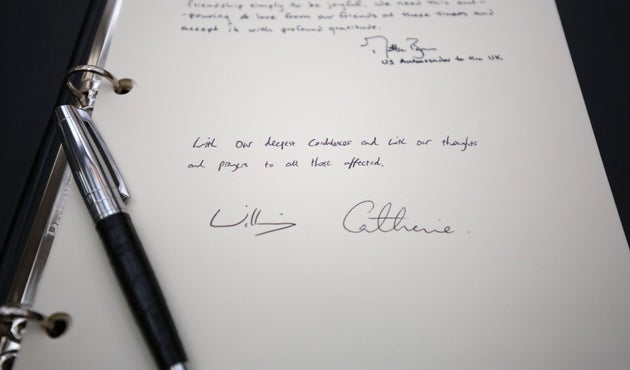 friendship simply to be joyful. We need this out-
-pouring & love from our friends at these times and
accept it with profound gratitude.
US Ambassador to the UK
With our deepest Condolences and with our thoughts
and prayers to all those affected.
William
Catherine.